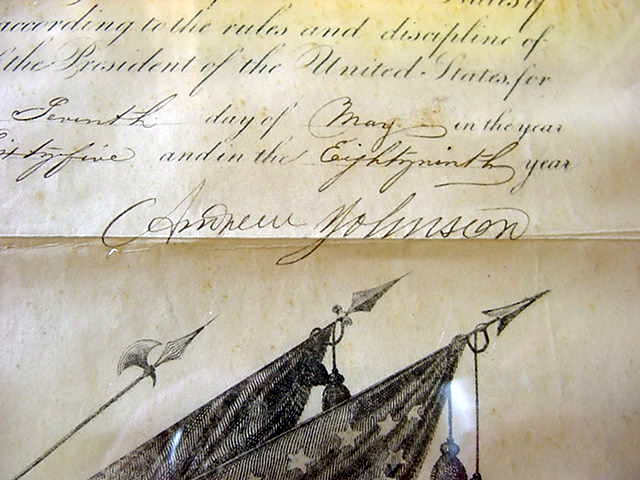 States of
according to the rules and discipline of
the President of the United States, for
Seventh day of May in the year
ixty five and in the Eighty ninth year
Andrew Johnson